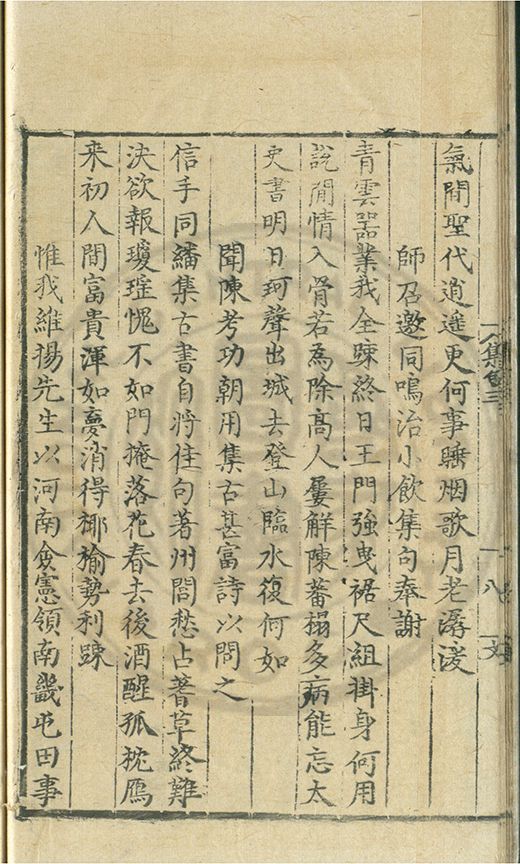 集卷三
八
氣間聖代逍遥更何事睡烟歌月老潺湲
師召邀同鳴治小飲集句奉謝
青雲器業我全踈終日王門強曳裾尺組掛身何用
說閒情入骨若為除高人屢解陳蕃榻多病能忘太
史書明日珂聲出城去登山臨水復何如
聞陳考功朝用集古甚富詩以問之
信手同繙集古書自将佳句著州閭愁占蓍草終難
决欲報瓊瑤愧不如門掩落花春去後酒醒孤枕鴈
来初人間富貴渾如夢消得揶揄勢利踈
惟我維揚先生以河南僉憲領南畿屯田事